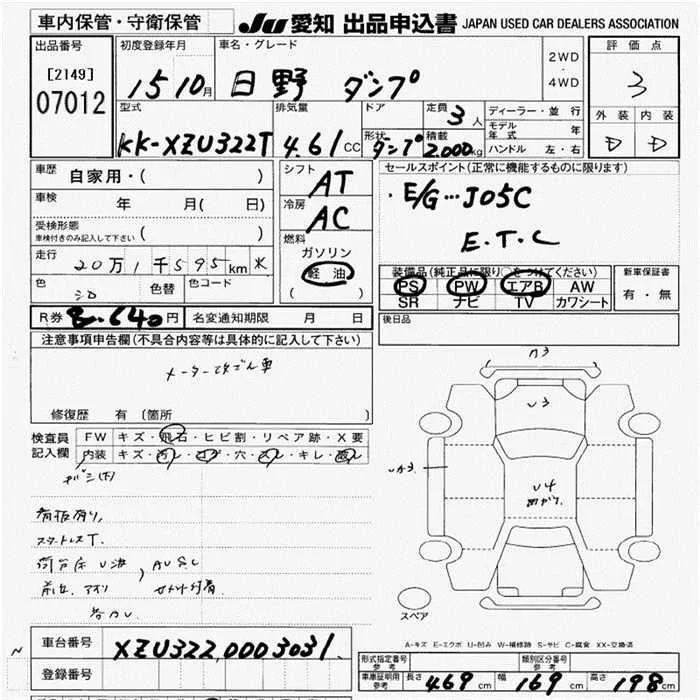 車内保管・守衛保管 JU 愛知 出品申込書 JAPAN USED CAR DEALERS ASSOCIATION
出品番号 初度登録年月 車名・グレード 2WD・4WD 評価点
[2149] 07012 15 10月 日野 ダンプ 3
型式 排気量 ドア 定員 3人 ディーラー・並行 外装 内装
モデル年式 年
KK-XZU322T 4.61CC 形状 ダンプ 積載 2,000kg ハンドル 左・右 D D
車歴 自家用・( ) シフト AT セールスポイント(正常に機能するものに限ります)
車検 年 月( 日) 冷房 AC ・E/G…J05C
受検形態 車検付きのみ記入して下さい ( ) 燃料 E.T.C
走行 20万1千595km ガソリン
軽油
( )
装備品(純正品に限り○をつけてください) 新車保証書
色 色替 色コード PS PW エアB AW 有・無
SR ナビ TV カワシート
R券 8,640円 名変通知期限 月 日 後日品
注意事項申告欄(不具合内容等は具体的に記入して下さい)
メーター改ざん車
修復歴 有 〔箇所 〕
検査員記入欄 FW キズ・飛石・ヒビ割・リペア跡・X要
内装 キズ・汚レ・コゲ・穴・スレ・キレ・
看板有り、
スタートレスT.
A3
U3
UA3
U4
スペア
A-キズ E-エクボ U-凹み W-補修跡 S-サビ C-腐食 XX-交換済
車台番号 XZU322.0003031
登録番号
形式指定番号 参考 類別区分番号 参考
車庫証明用 参考 長さ 469cm 幅 169cm 高さ 198cm